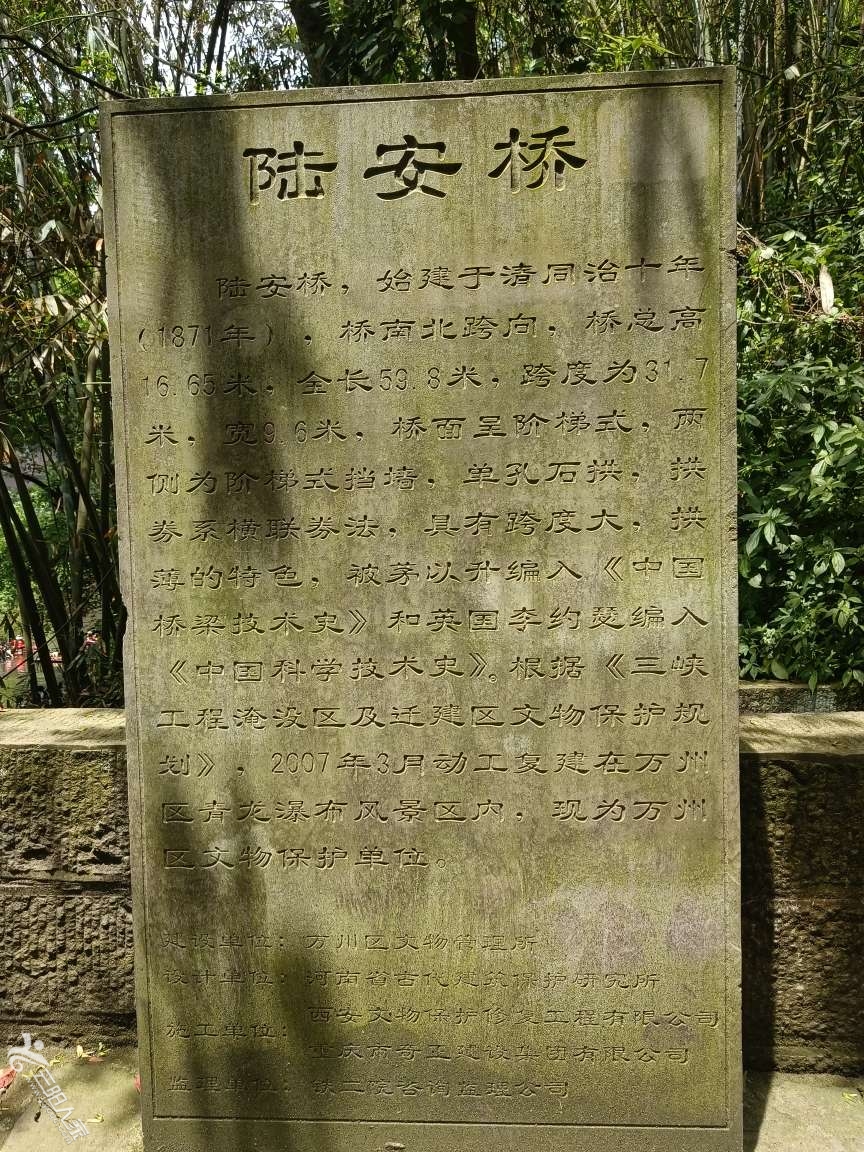 陆安桥
陆安桥，始建于清同治十年
（1871年），桥南北跨向，桥总高
16.65米，全长59.8米，跨度为31.7
米，宽9.6米，桥面呈阶梯式，两
侧为阶梯式挡墙，单孔石拱，拱
券系横联券法，具有跨度大，拱
薄的特色，被茅以升编入《中国
桥梁技术史》和英国李约瑟编入
《中国科学技术史》。根据《三峡
工程淹没区及迁建区文物保护规
划》，2007年3月动工复建在万州
区青龙瀑布风景区内，现为万州
区文物保护单位。
建设单位：万州区文物管理所
设计单位：河南省古代建筑保护研究所
施工单位：西安文物保护修复工程有限公司
重庆市奇卫建设集团有限公司
监理单位：铁二院咨询监理公司